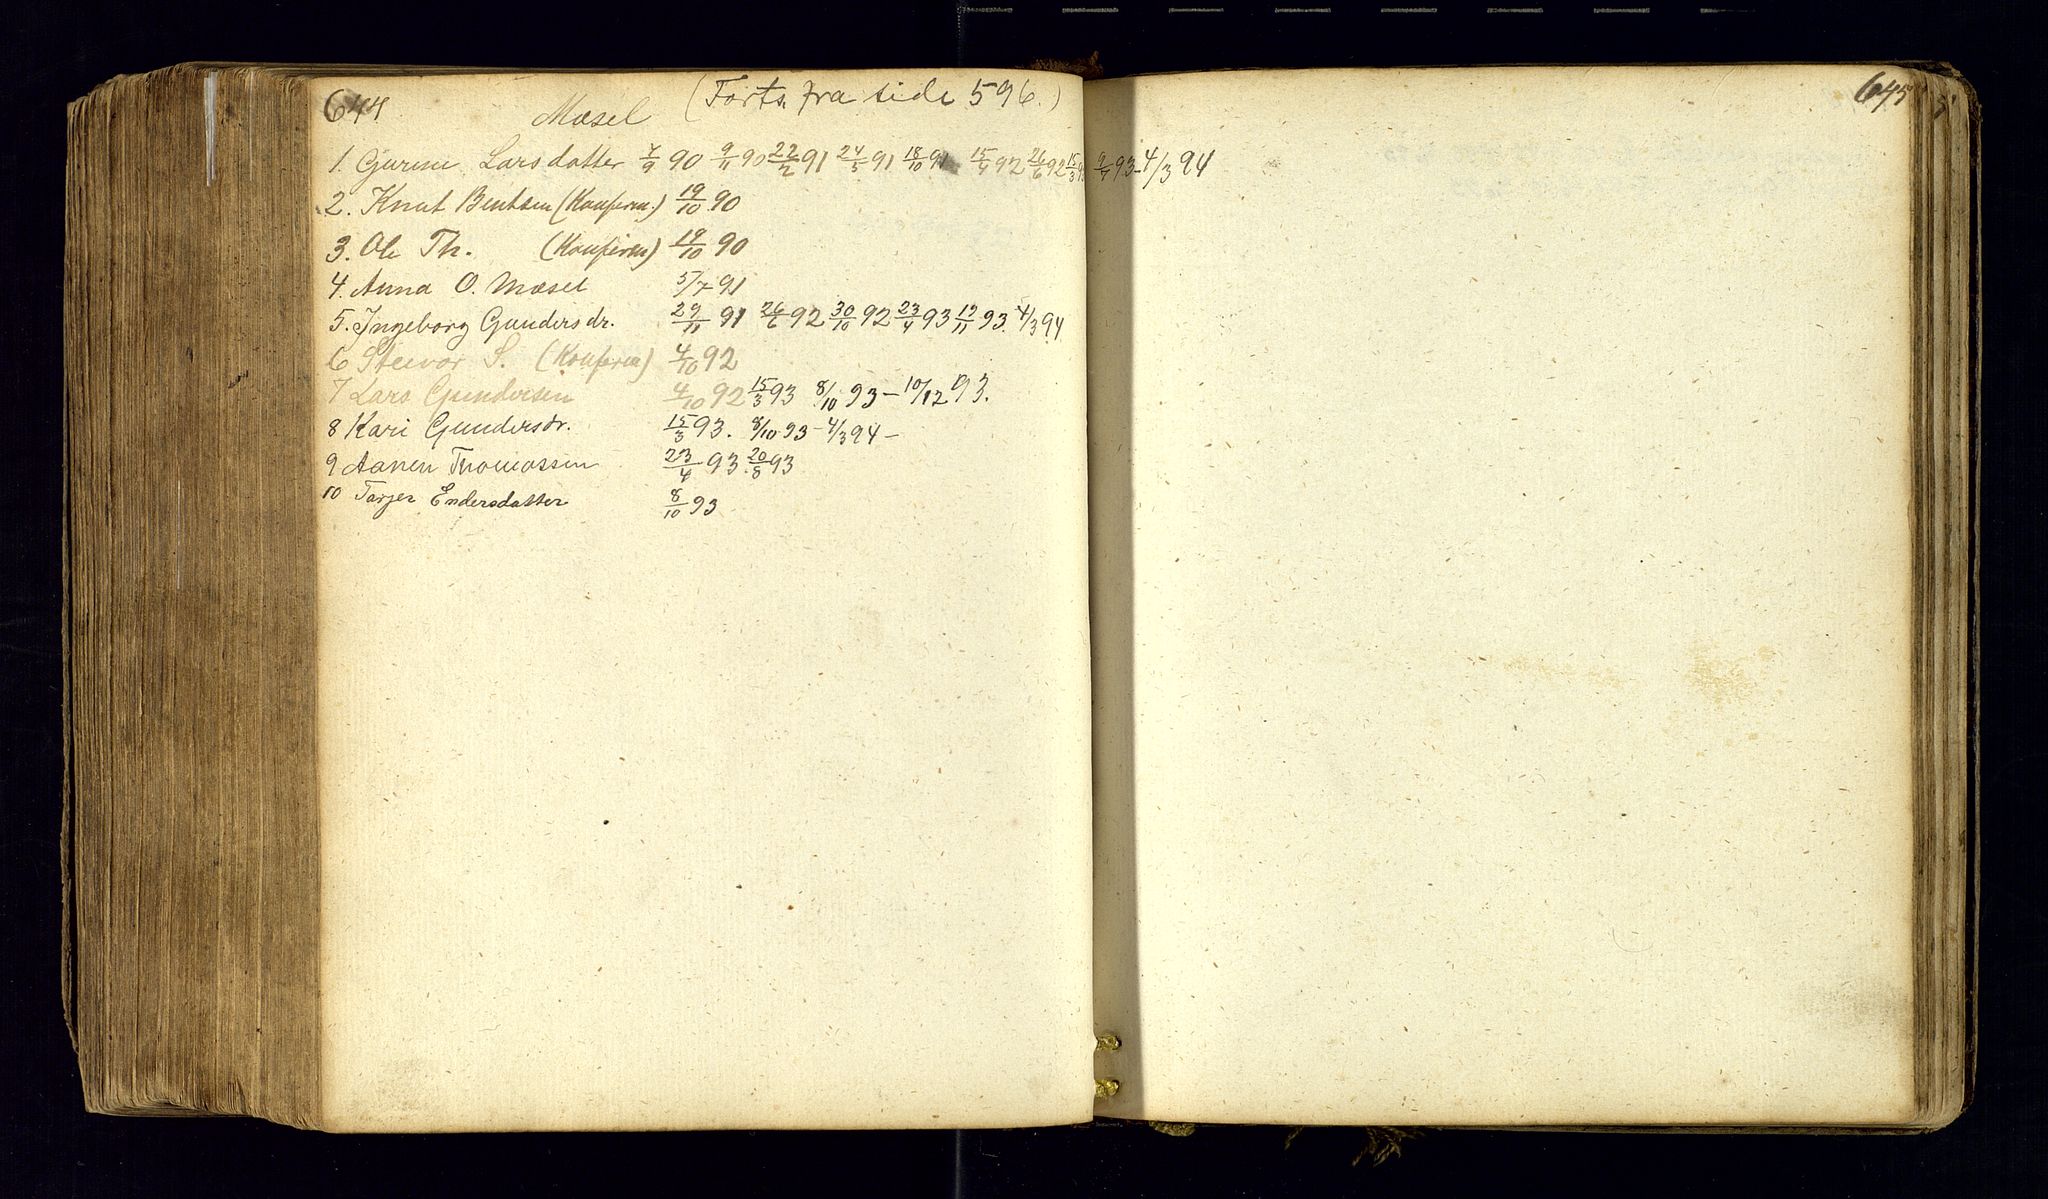 644 Mæsel (Forts. fra side 596.)
1. Gurine Larsdatter 7/9 90 9/11 90 22/2 91 24/5 91 18/10 91 15/4 92 26/6 92 15/3 93 9/7 93 - 4/3 94
2. Knut Bentsen (Konfirm.) 19/10 90
3. Ole Th. (Konfirm) 19/10 90
4. Anna O. Mæsel 5/7 91
5. Ingeborg Gundersdr. 29/11 91 26/6 92 30/10 92 23/4 93 19/11 93. 4/3 94
6 S. (Konfirm) 4/10 92
7 Lars Gundersen 4/10 92 15/3 93 8/10 93 - 10/12 93.
8 Kari Gundersdr. 15/3 93. 8/10 93 - 4/3 94 -
9 Aanen Thomassen 23/4 93 20/8 93
10 Tarjer Endersdatter 8/10 93
645